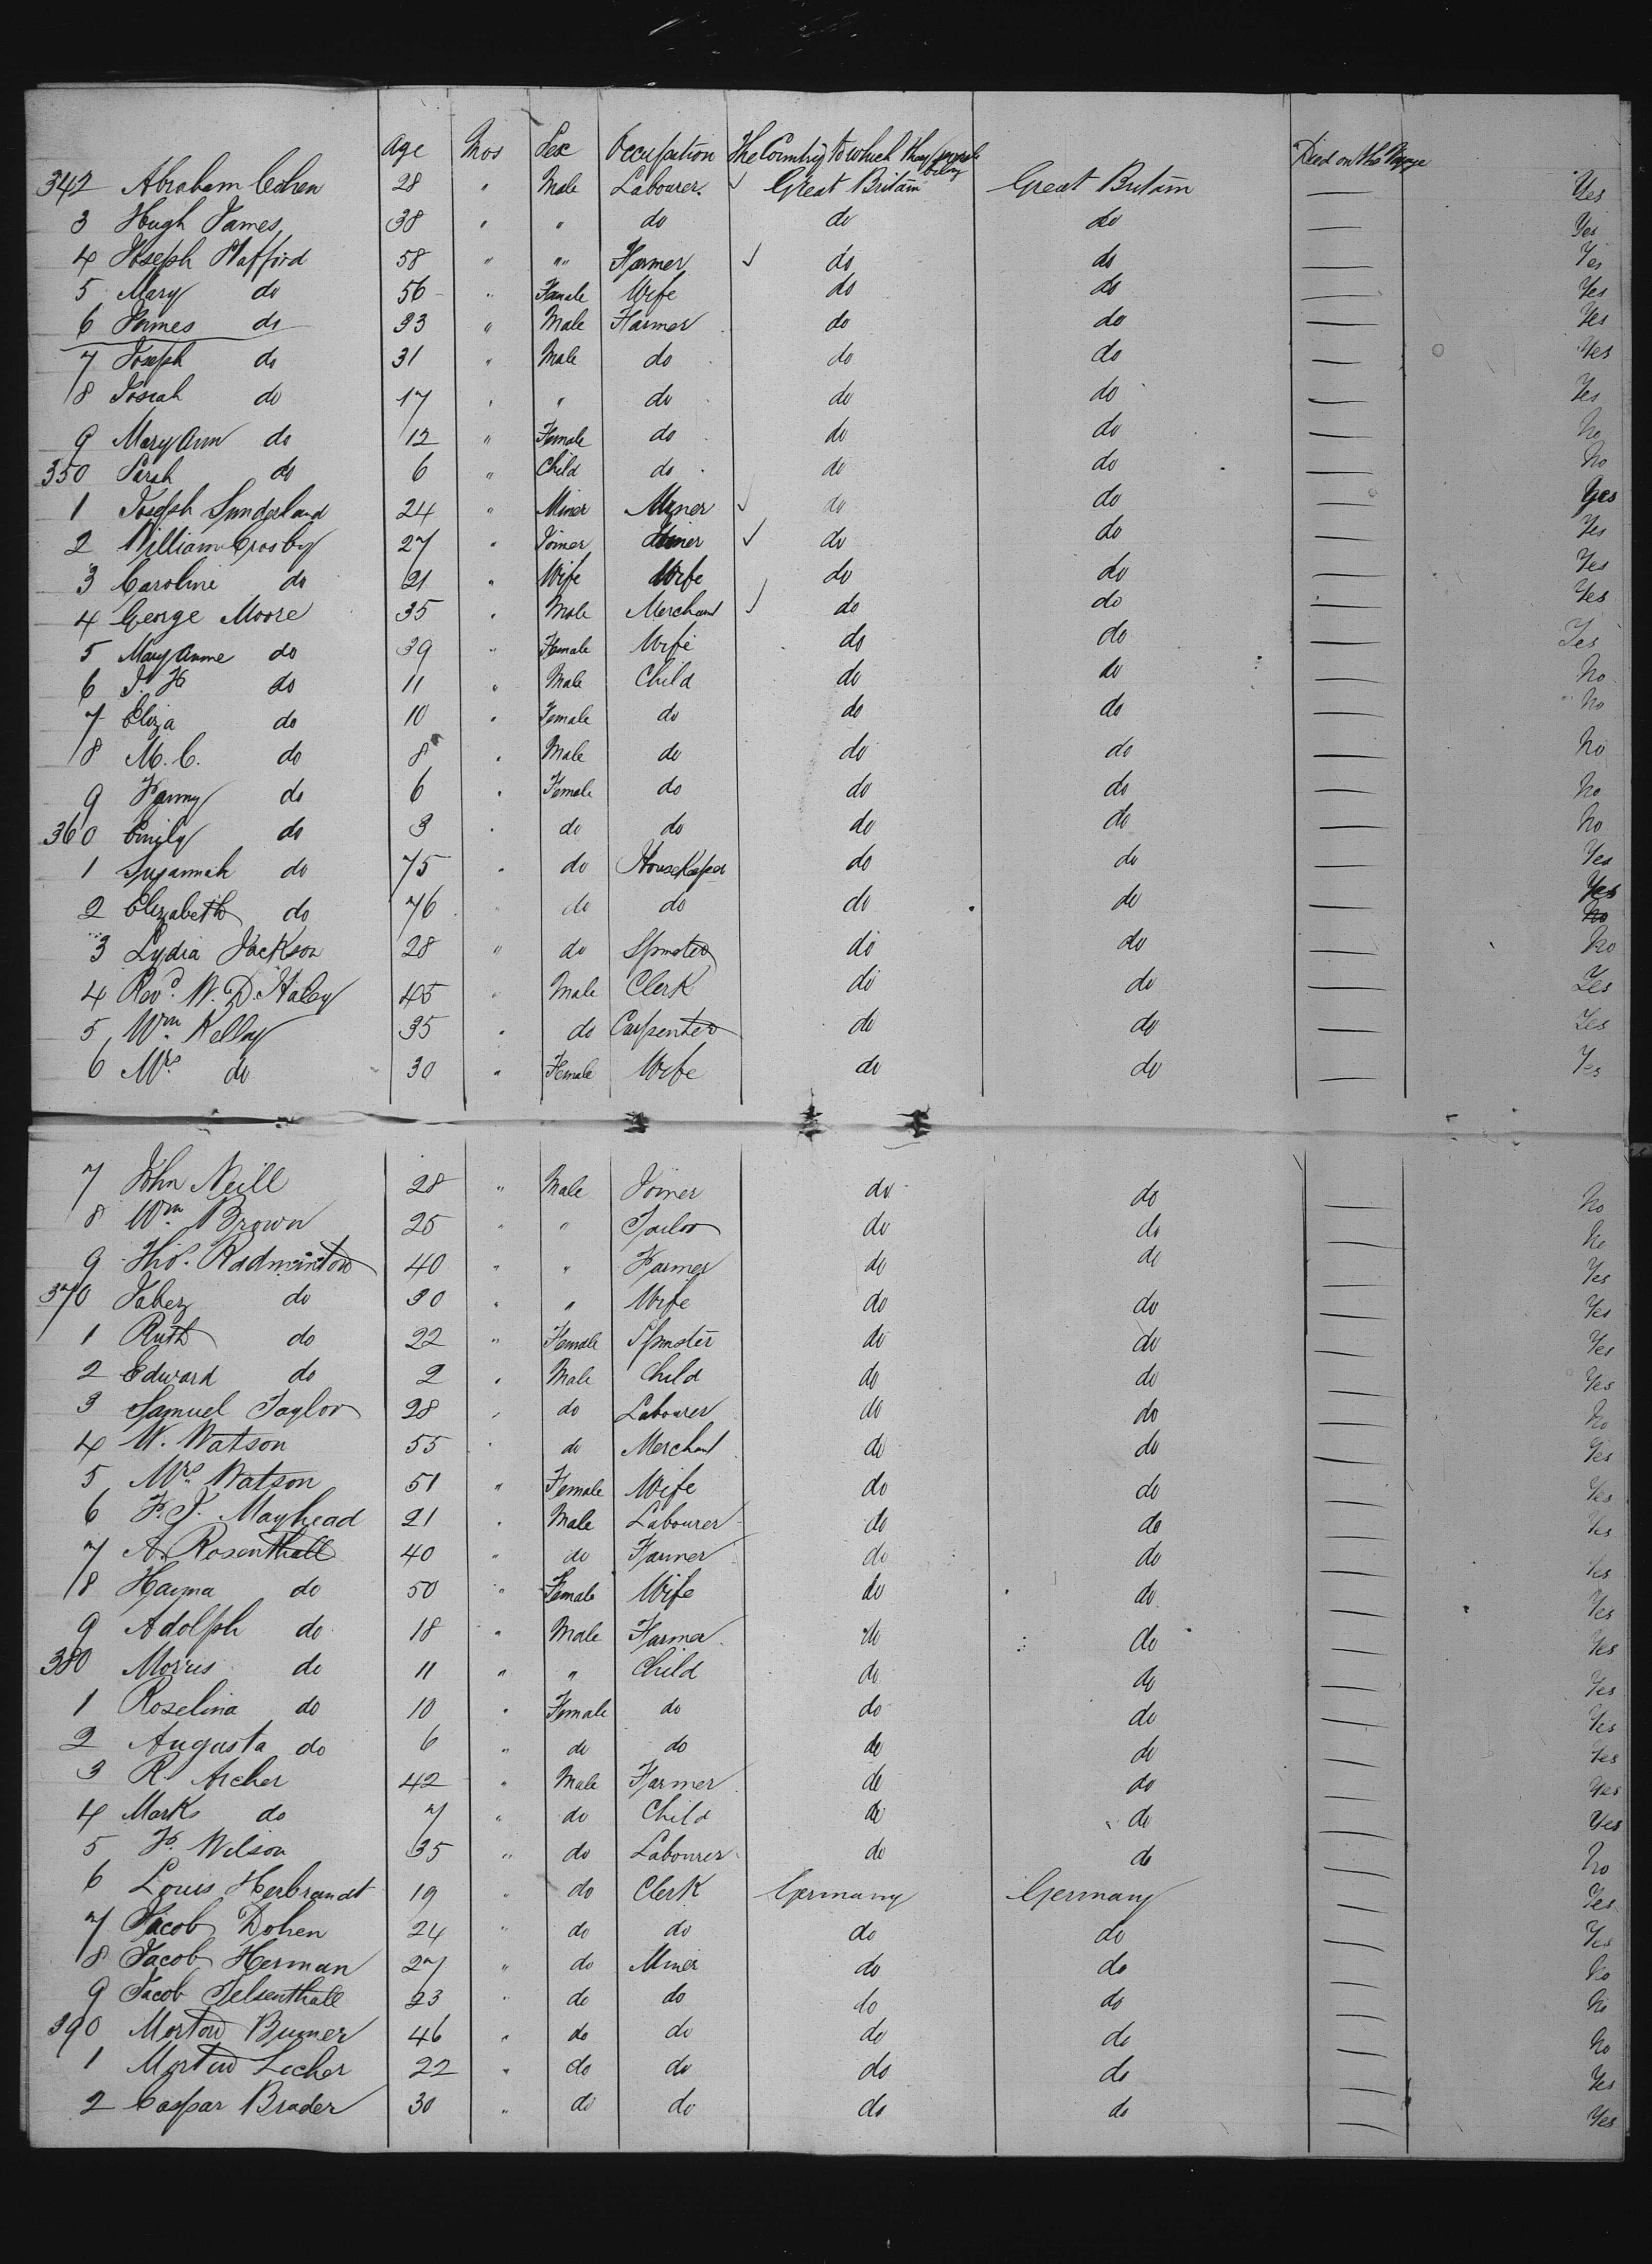 Age Mos Sex Occupation The Country to which they severally belong Died on the Voyage
342 Abraham Cohen 28 " Male Labourer ✓ Great Britain Great Britain — Yes
3 Hugh James 38 " " do do do — Yes
4 Joseph Stafford 58 " " Farmer ✓ do do — Yes
5 Mary do 56 " Female Wife do do — Yes
6 James do 33 " Male Farmer do do — Yes
7 Joseph do 31 " Male do do do — Yes
8 Josiah do 17 " " do do do — Yes
9 Mary Ann do 12 " Female do do do — No
350 Sarah do 6 " Child do do do — No
1 Joseph Sunderland 24 " Miner Miner ✓ do do — Yes
2 William Crosby 27 " Joiner Joiner ✓ do do — Yes
3 Caroline do 21 " Wife Wife do do — Yes
4 George Moore 35 " Male Merchant ✓ do do — Yes
5 Mary Anne do 39 " Female Wife do do — Yes
6 J. H do 11 " Male Child do do — No
7 Eliza do 10 " Female do do do — No
8 M. C. do 8 " Male do do do — No
9 Fanny do 6 " Female do do do — No
360 Emily do 3 " do do do do — No
1 Susannah do 75 " do Housekeeper do do — Yes
2 Elizabeth do 76 " do do do do — Yes No
3 Lydia Jackson 28 " do Spinster do do — No
4 Revd. W. D. Haley 45 " Male Clerk do do — Yes
5 Wm Kellay 35 " do Carpenter do do — Yes
6 Mrs do 30 " Female Wife do do — Yes
7 John Neill 28 " Male Joiner do do — No
8 Wm Brown 25 " " Tailor do do — No
9 Tho. Radminton 40 " " Farmer do do — Yes
370 Jabez do 30 " " Wife do do — Yes
1 Ruth do 22 " Female Spinster do do — Yes
2 Edward do 2 " Male Child do do — Yes
3 Samuel Taylor 28 " do Labourer do do — No
4 W. Watson 55 " do Merchant do do — Yes
5 Mrs Watson 51 " Female Wife do do — Yes
6 F. J. Mayhead 21 " Male Labourer do do — Yes
7 A. Rosenthall 40 " do Farmer do do — Yes
8 Hayma do 50 " Female Wife do do — Yes
9 Adolph do 18 " Male Farmer do do — Yes
380 Morris do 11 " " Child do do — Yes
1 Roselina do 10 " Female do do do — Yes
2 Augusta do 6 " do do do do — Yes
3 R. Archer 42 " Male Farmer do do — Yes
4 Marks do 7 " do Child do do — Yes
5 F. Wilson 35 " do Labourer do do — No
6 Louis Herbrandt 19 " do Clerk Germany Germany — Yes
7 Jacob Dohen 24 " do do do do — Yes
8 Jacob Herman 27 " do Miner do do — No
9 Jacob Telsenthall 23 " do do do do — No
390 Morton Bumer 46 " do do do do — No
1 Morton Locher 22 " do do do do — Yes
2 Caspar Brader 30 " do do do do — Yes